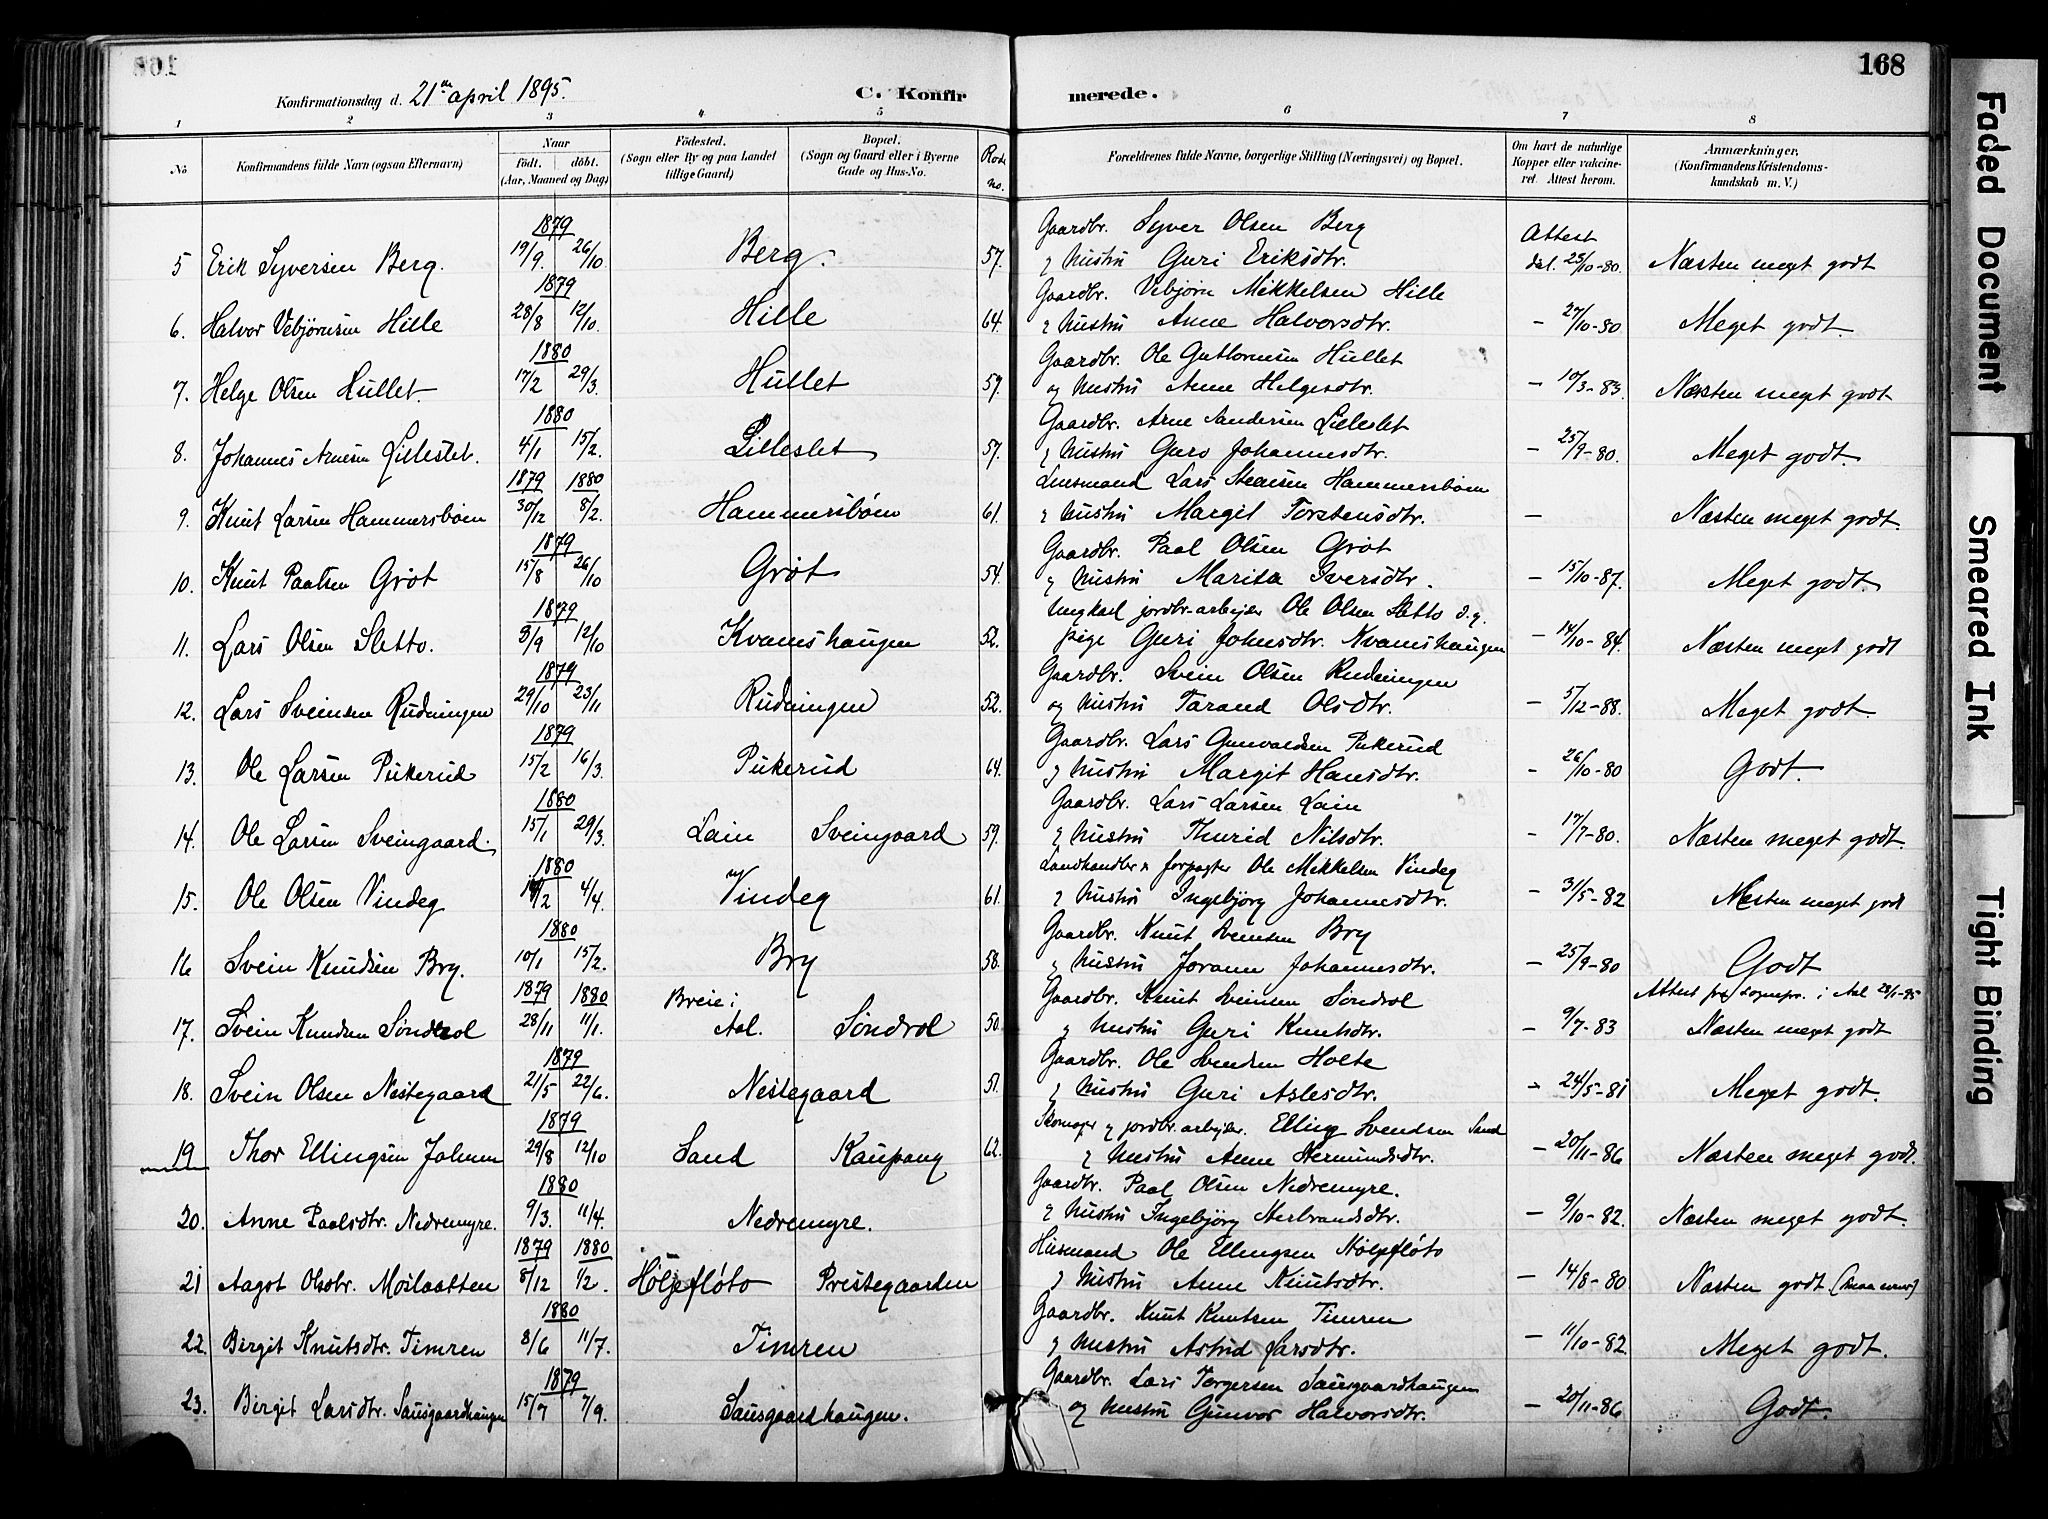 168
Konfirmationsdag d. 21de april 1895.
C. Konfirmerede.
1 2 3 4 5 6 7 8
No
Konfirmandens fulde Navn (ogsaa Efternavn)
Naar
födt. döbt.
(Aar, Maaned og Dag)
Födested.
(Sogn eller By og paa Landet
tillige Gaard)
Bopæl.
(Sogn og Gaard eller i Byerne
Gade og Hus-No.
Rode
no.
Forældrenes fulde Navne, borgerlige Stilling (Næringsvei) og Bopæl.
Om havt de naturlige
Kopper eller vakcine-
ret. Attest herom.
Anmærkninger.
(Konfirmandens Kristendoms-
kundskab m. V.)
1879 Gaardbr. Syver Olsen Berg Attest
5 Erik Syversen Berg. 19/9. 26/10 Berg. 57. & Hustru Guri Eriksdtr. dat. 25/10-80. Næsten meget godt
1879 Gaardbr. Vebjørn Mikkelsen Hille
6. Halvor Vebjørnsen Hille 28/8 12/10. Hille 64. & Hustru Anne Halvorsdtr. – 27/10-80 Meget godt.
1880 Gaardbr. Ole Guttormsen Hullet
7. Helge Olsen Hullet. 17/2 29/3. Hullet 59. og Hustru Anne Helgesdtr. – 10/3-83. Næsten meget godt
1880 Gaardbr. Arne Sandersen Lilleslet
8. Johannes Arnesen Lilleslet. 4/1 15/2. Lilleslet 57. & Hustru Guro Johannesdtr. – 25/9-80. Meget godt.
1879 1880 Lensmand Lars Steinsen Hammersbøen
9. Knut Larsen Hammersbøen 30/12 8/2. Hammersbøen 61. & Hustru Margit Torstensdtr. – Næsten meget godt.
1879 Gaardbr. Paal Olsen Grøt
10. Knut Paalsen Grøt 15/8 26/10 Grøt 54. & Hustru Marita Iversdtr. – 15/10-87. Meget godt.
1879 Ungkarl jordbr.arbejder Ole Olsen Sletto o.g.
11. Lars Olsen Sletto. 3/9 12/10 Kvamshaugen 52. pige Guri Johnsdtr. Kvamshaugen – 14/10-84. Næsten meget godt
1879 Gaardbr. Svein Olsen Rudningen
12. Lars Sveinsen Rudningen 29/10 23/11 Rudningen 52. og Hustru Tarand Olsdtr. – 5/12-88. Meget godt.
1879 Gaardbr. Lars Gunvaldsen Pukerud
13. Ole Larsen Pukerud 15/2 16/3. Pukerud 64. & Hustru Margit Hansdtr. – 26/10-80 Godt.
1880 Gaardbr. Lars Larsen Lain
14. Ole Larsen Sveingaard. 15/1 29/3. Lain Sveingaard 59. & Hustru Thurid Nilsdtr. – 17/7-80. Næsten meget godt.
1880 Landhandler & forpagter Ole Mikkelsen Vindeg
15. Ole Olsen Vindeg 4/4. Vindeg 61. & Hustru Ingebjørg Johannesdtr. – 31/5-82 Næsten meget godt
1880 Gaardbr. Knut Sveinsen Bry
16 Svein Knudsen Bry. 10/1 15/2. Bry 58. & Hustru Jorann Johannesdtr. – 25/9-80 Godt
1879 1880 Breie i Gaardbr. Knut Sveinsen Søndrol Attest fra sognepr. i Aal 23/1-95
17. Svein Knudsen Søndrol 28/11 11/1. Aal. Søndrol 50. & Hustru Guri Knutsdtr. – 9/7-83 Næsten meget godt
1879 Gaardbr. Ole Svendsen Holte
18. Svein Olsen Nestegaard 21/5 22/6. Nestegaard 51. & Hustru Guri Aslesdtr. – 24/5-81 Meget godt.
1879 Skomager & jordbr.arbejder. Elling Svendsen Sand
19 Thor Ellingsen 29/8 12/10 Sand Kaupang 62. & Hustru Anne Hermundsdtr. – 20/11-86 Næsten meget godt.
1880 Gaardbr. Paal Olsen Nedremyre.
20. Anne Paalsdtr. Nedremyre. 9/3. 11/4. Nedremyre. & Hustru Ingebjørg Herbrandsdtr. – 9/10-82. Næsten meget godt.
1879 1880 Husmand Ole Ellingsen Hølpefløto
21 Aagot Olsdtr. Moslaatten 8/12 1/2. Høljefløto Prestegaarden & Hustru Anne Knutsdtr. – 14/8-80 Næsten godt
1880 Gaardbr. Knut Knutsen Timren
22. Birgit Knutsdtr. Timren 8/6 11/7. Timren & Hustru Astrid Larsdtr. – 11/10-82. Meget godt.
1879 Gaardbr. Lars Torgersen Sausgaardhaugen
23. Birgit Larsdtr. Sausgaardhaugen 15/7 7/9. Sausgaardhaugen. og Hustru Gunvor Halvorsdtr. – 20/11-86 Godt.
Faded Document
Smeared Ink
Tight Binding